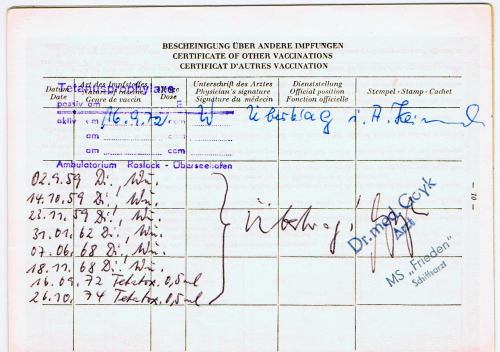 BESCHEINIGUNG ÜBER ANDERE IMPFUNGEN
CERTIFICATE OF OTHER VACCINATIONS
CERTIFICAT D'AUTRES VACCINATION
Datum Date
Art des Impfstoffes Genre de vaccin
Dose
Unterschrift des Arztes Physician's signature Signature du médecin
Dienststellung Official position Fonction officielle
Stempel - Stamp - Cachet
Tetanusprophylaxe
passiv am
aktiv am 16.9.72 Übertrag i. A.
am ccm
am ccm
Ambulatorium Rostock - Überseehafen
02.9.59 Di., Wu.
14.10.59 Di., Wu.
23.11.59 Di., Wu.
31.01.62 Di., Wu.
07.06.68 Di., Wu.
18.11.68 Di., Wu.
16.09.72 Tetatox. 0,5ml
26.10.74 Tetatox. 0,5ml
Übertrag
Dr. med. Goyk
Arzt
MS „Frieden"
Schiffsarzt
— 10 —